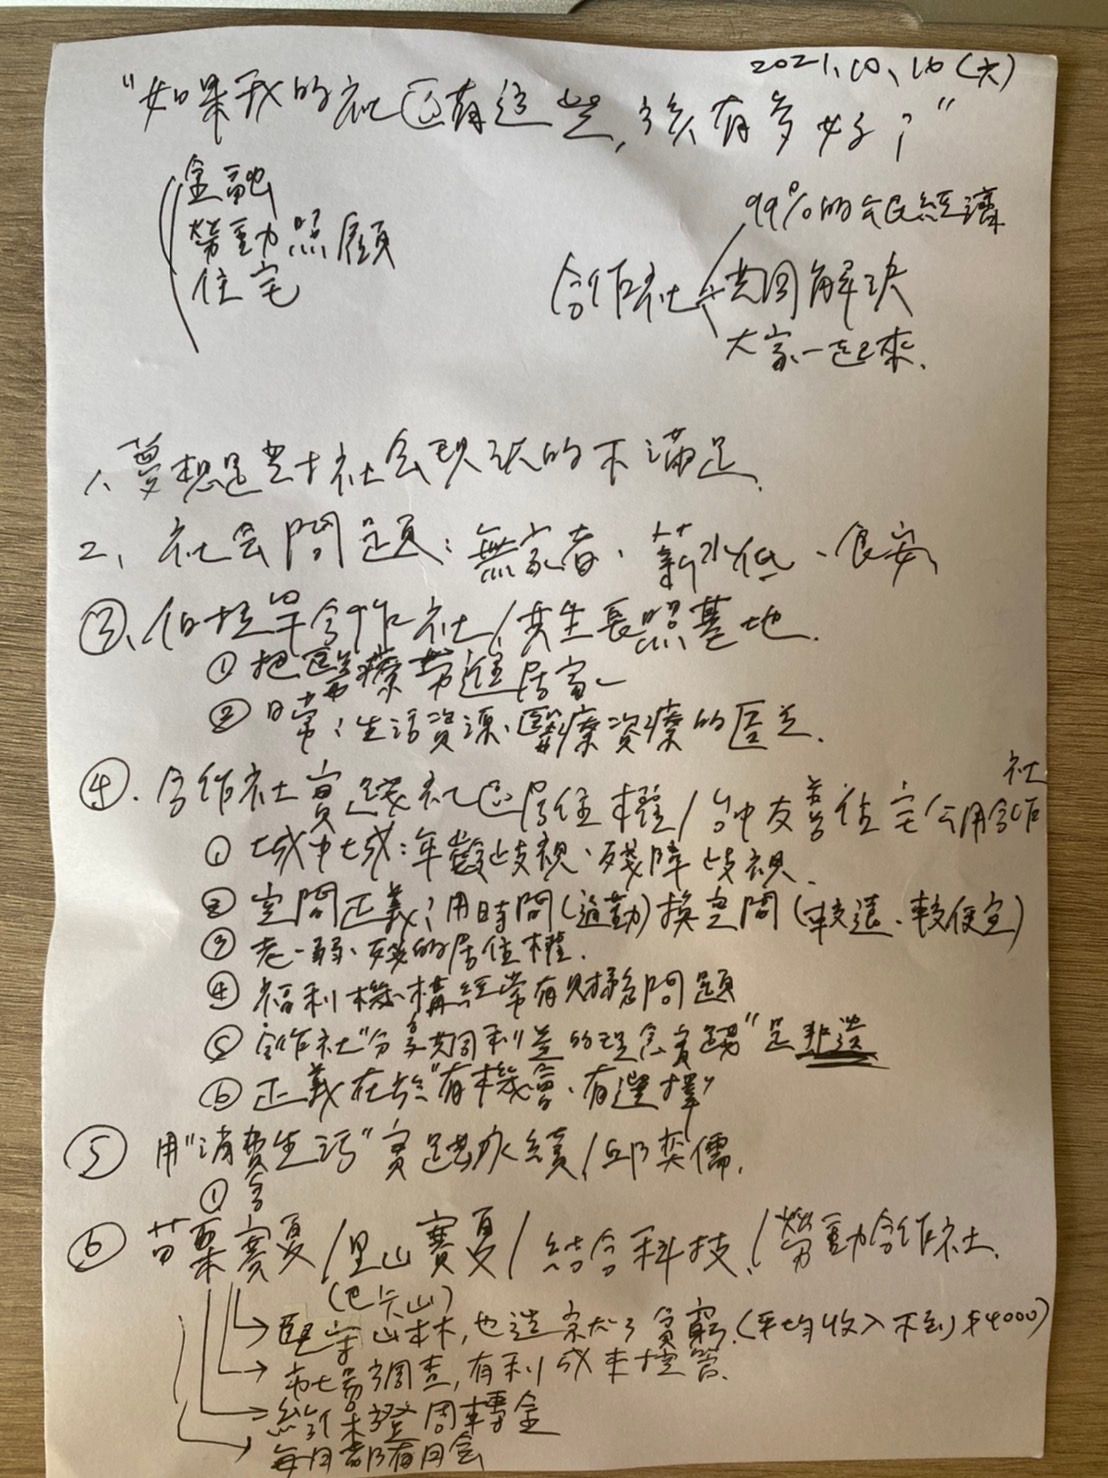 2021.10.16(六)
"如果我的社区有這些,該有多好?"
金融
勞動照顧
住宅
99%的公民經濟
合作社 共同解決
大家一起來.
1.夢想是對社会現狀的不滿足.
2、社会問題:無家者、薪水低、食安
③、伯拉罕合作社/共生長照基地.
①把醫療帶進居家
②日常:生活資源、醫療資療的匱乏.
④.合作社實踐社区居住權/台中友善住宅公用合作社
①城中城:年齡歧視、殘障歧視.
②空間正義?用時間(通勤)換空間(較遠、較便宜)
③老、弱、殘的居住權.
④福利機構經常有財務問題
⑤合作社"分享共同利益的理念實踐"是非造
⑥正義在於"有機會、有選擇"
⑤用"消費生活"實踐永續/邱奕儒.
①合
⑥苗栗賽夏/里山賽夏/結合科技/勞動合作社.
(巴卡山)
堅守山林,也造就了貧窮.(平均收入不到$4000)
市場調查,有利成本控管.
給工木證周轉金
每月都有月会